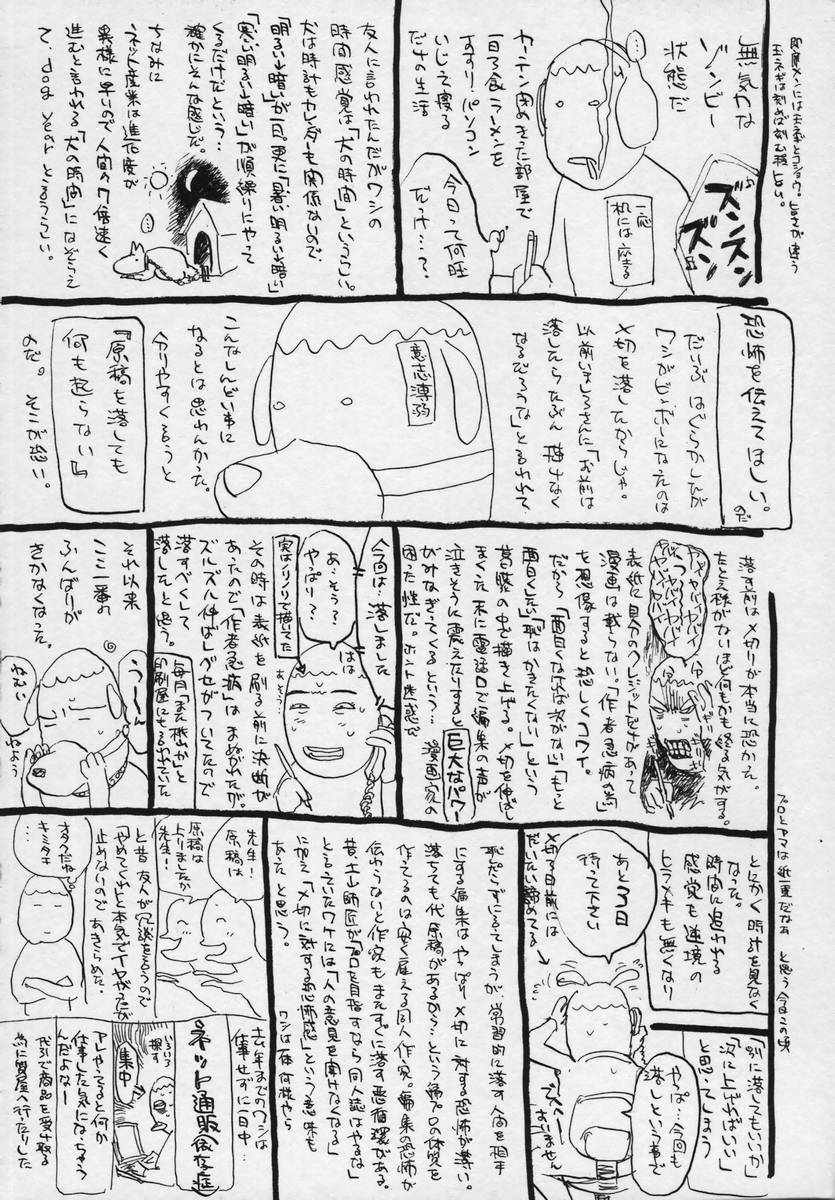 無気力な
ゾンビー
状態だ
カーテン閉めきった部屋で
一日3食ラーメンを
すすり、パソコン
いじって寝る
だけの生活
一応
机には座る
ズンズン
ズン
今日って何日
だっけ…？
友人に言われたんだがワシの
時間感覚は「犬の時間」というらしい。
犬は時計もカレンダーも関係ないので
「明るい↓暗い」が一日。更に「暑い明るい↓暗い」
「寒い明るい↓暗い」が順繰りにやって
くるだけだという…
確かにそんな感じだ。
ちなみに
ネット産業は進化度が
異様に早いので人間の7倍速く
進むと言われる「犬の時間」になぞらえ
て、dog yearと言うらしい。
恐怖を伝えてほしい。
のだ
だいぶはぐらかしたが
ワシがビンボーになったのは
〆切を落したからじゃ。
落したらたぶん描けなく
なるだろうな」と言われて、
意志薄弱
こんなしんどい事に
なるとは思わんかった。
分りやすく言うと
『原稿を落しても
何も起らない』
のだ。そこが恐い。
落す前は〆切りが本当に恐かった。
たとえ様がないほど何もかも終る気がする。
表紙に自分のクレジットだけがあって
漫画は載らない「作者急病の為」
を想像すると恐しくコワイ。
だから「面白くなければ次がない」「もっと
面白くしたい」「恥はかきたくない」という
葛藤の中で描き上げる。〆切を伸ばし
まくった末に電話口で編集の声が
泣きそうに震えたりすると巨大なパワー
がみなぎってくるという…漫画家の
困った性だ。ホント迷惑で
今回は…落しました
あ…そう？
やっぱり？
はは
実はノリノリで描いてた
その時は表紙を刷る前に決断が
あったので「作者急病」はまぬがれたが、
ズルズル伸ばしグセがついてたので
落すべくして
落したと思う。
毎月「また桃山か」と
印刷屋にも言われていた
それ以来
ここ一番の
ふんばりが
きかなくなった。
う〜〜ん
ねむい
ねよう
プロとアマは紙一重だなぁ と思う今日この頃
とにかく時計を見なく
なった。
時間に追われる
感覚も逆境の
ヒラメキも無くなり
「別に落してもいいか」
「次に上げればいい」
と思ってしまう
あと3日
待って下さい
〆切3日前には
だいたい諦めてる
やっぱ…今回も
落しという事で
恥だらずになってしまうが、常習的に落す人間を相手
にする編集はやっぱり〆切に対する恐怖が薄い。
落ちても代原稿があるから…という編プロの体質を
作ってるのは安く雇える同人作家。編集の恐怖が
伝わらないと作家もまたすぐに落す悪循環がある。
昔、土山師匠が「プロを目指すなら同人誌はやるな」
と言っていたワケには「人の意見を聞けなくなる」
に加え「〆切に対する恐怖感」という意味も
あったと思う。
ワシは一体何様やら
先生！
原稿は
原稿は
上りましたか
先生！
オタクだね
キミタチ
と昔友人が冗談を言うので
「やめてくれ」と本気でイヤがったが
止めないので、あきらめた。
去年までのワシは
仕事せずに一日中…
ネット通販依存症
いろいろ
探す
集中
アレやってると何か
仕事した気になっちゃう
んだよなー
代引で商品を受け取る
為に質屋へ行ったりした